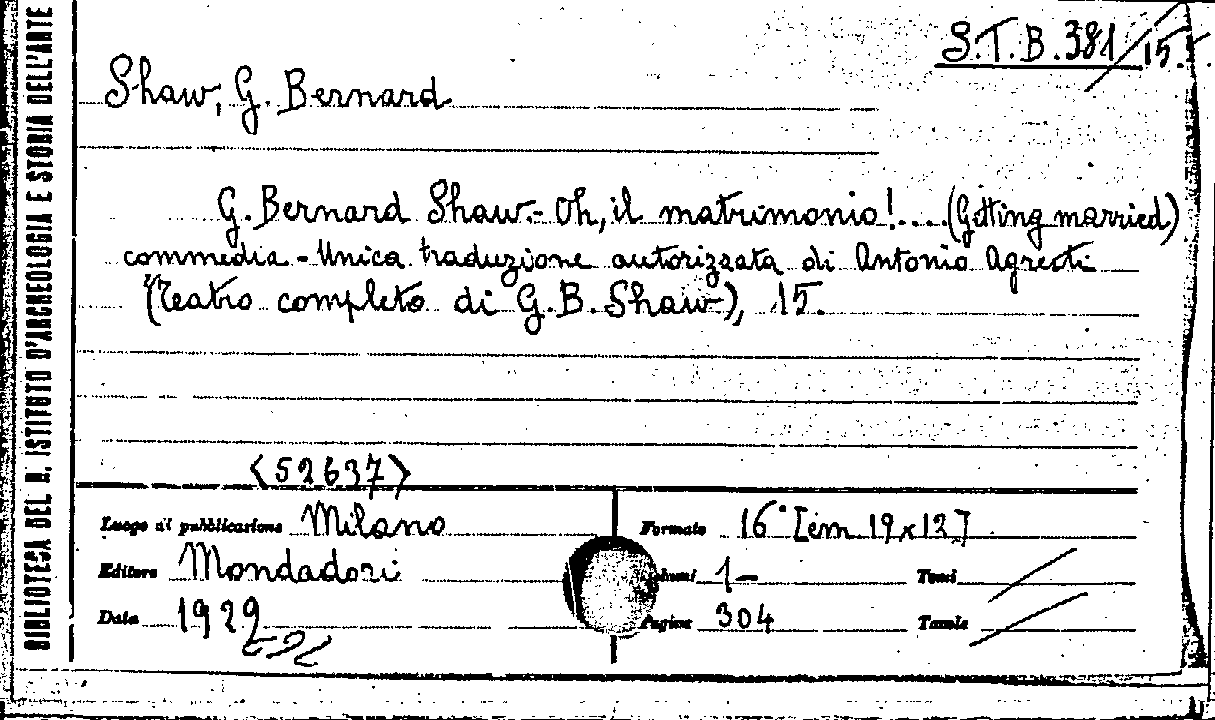 BIBLIOTECA DEL R. ISTITUTO D'ARCHEOLOGIA E STORIA DELL'ARTE
S.T.B. 381/15.
Shaw, G. Bernard
G. Bernard Shaw.- Oh, il matrimonio!... (Getting married)
commedia - Unica traduzione autorizzata di Antonio Agresti
(Teatro completo di G.B. Shaw), 15.
<52637>
Luogo di pubblicazione Milano
Formato 16° [cm. 19x12]
Editore Mondadori
Volumi 1-
Tomi
Data 1929
Pagine 304
Tavole